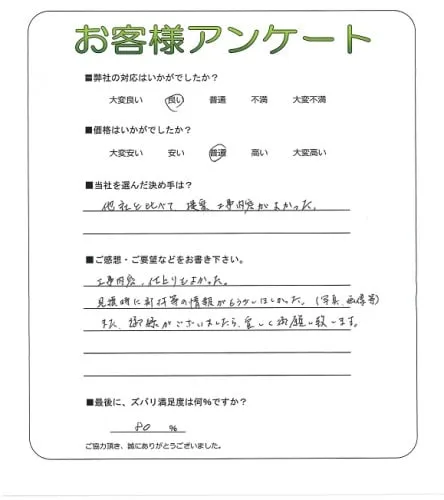 お客様アンケート
■弊社の対応はいかがでしたか?
大変良い 良い 普通 不満 大変不満
■価格はいかがでしたか?
大変安い 安い 普通 高い 大変高い
■当社を選んだ決め手は?
他社と比べて、提案、工事内容がよかった。
■ご感想・ご要望などをお書き下さい。
工事内容、仕上りもよかった。
見積時に部材等の情報がもう少しほしかった。(写真、画像等)
また、御縁がございましたら、宜しく御願い致します。
■最後に、ズバリ満足度は何%ですか?
80 %
ご協力頂き、誠にありがとうございました。